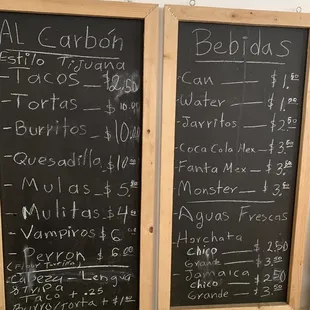 AL Carbón
Estilo Tijuana
- Tacos — $2.50
- Tortas — $10.45
- Burritos — $10.00
- Quesadilla $10.00
- Mulas — $5.50
- Mulitas $4.00
- Vampiros $6.00
- Perron $6.00
- Cabeza - Lengua
Tripa
Taco + .25
Burro/Torta + $1.00
Bebidas
- Can — $1.50
- Water — $1.00
- Jarritos — $2.50
- Coca Cola Mex - $3.50
- Fanta Mex — $3.50
- Monster — $3.50
- Aguas Frescas
- Horchata
Chico — $2.50
Grande — $3.50
- Jamaica
chico — $2.50
Grande — $3.50